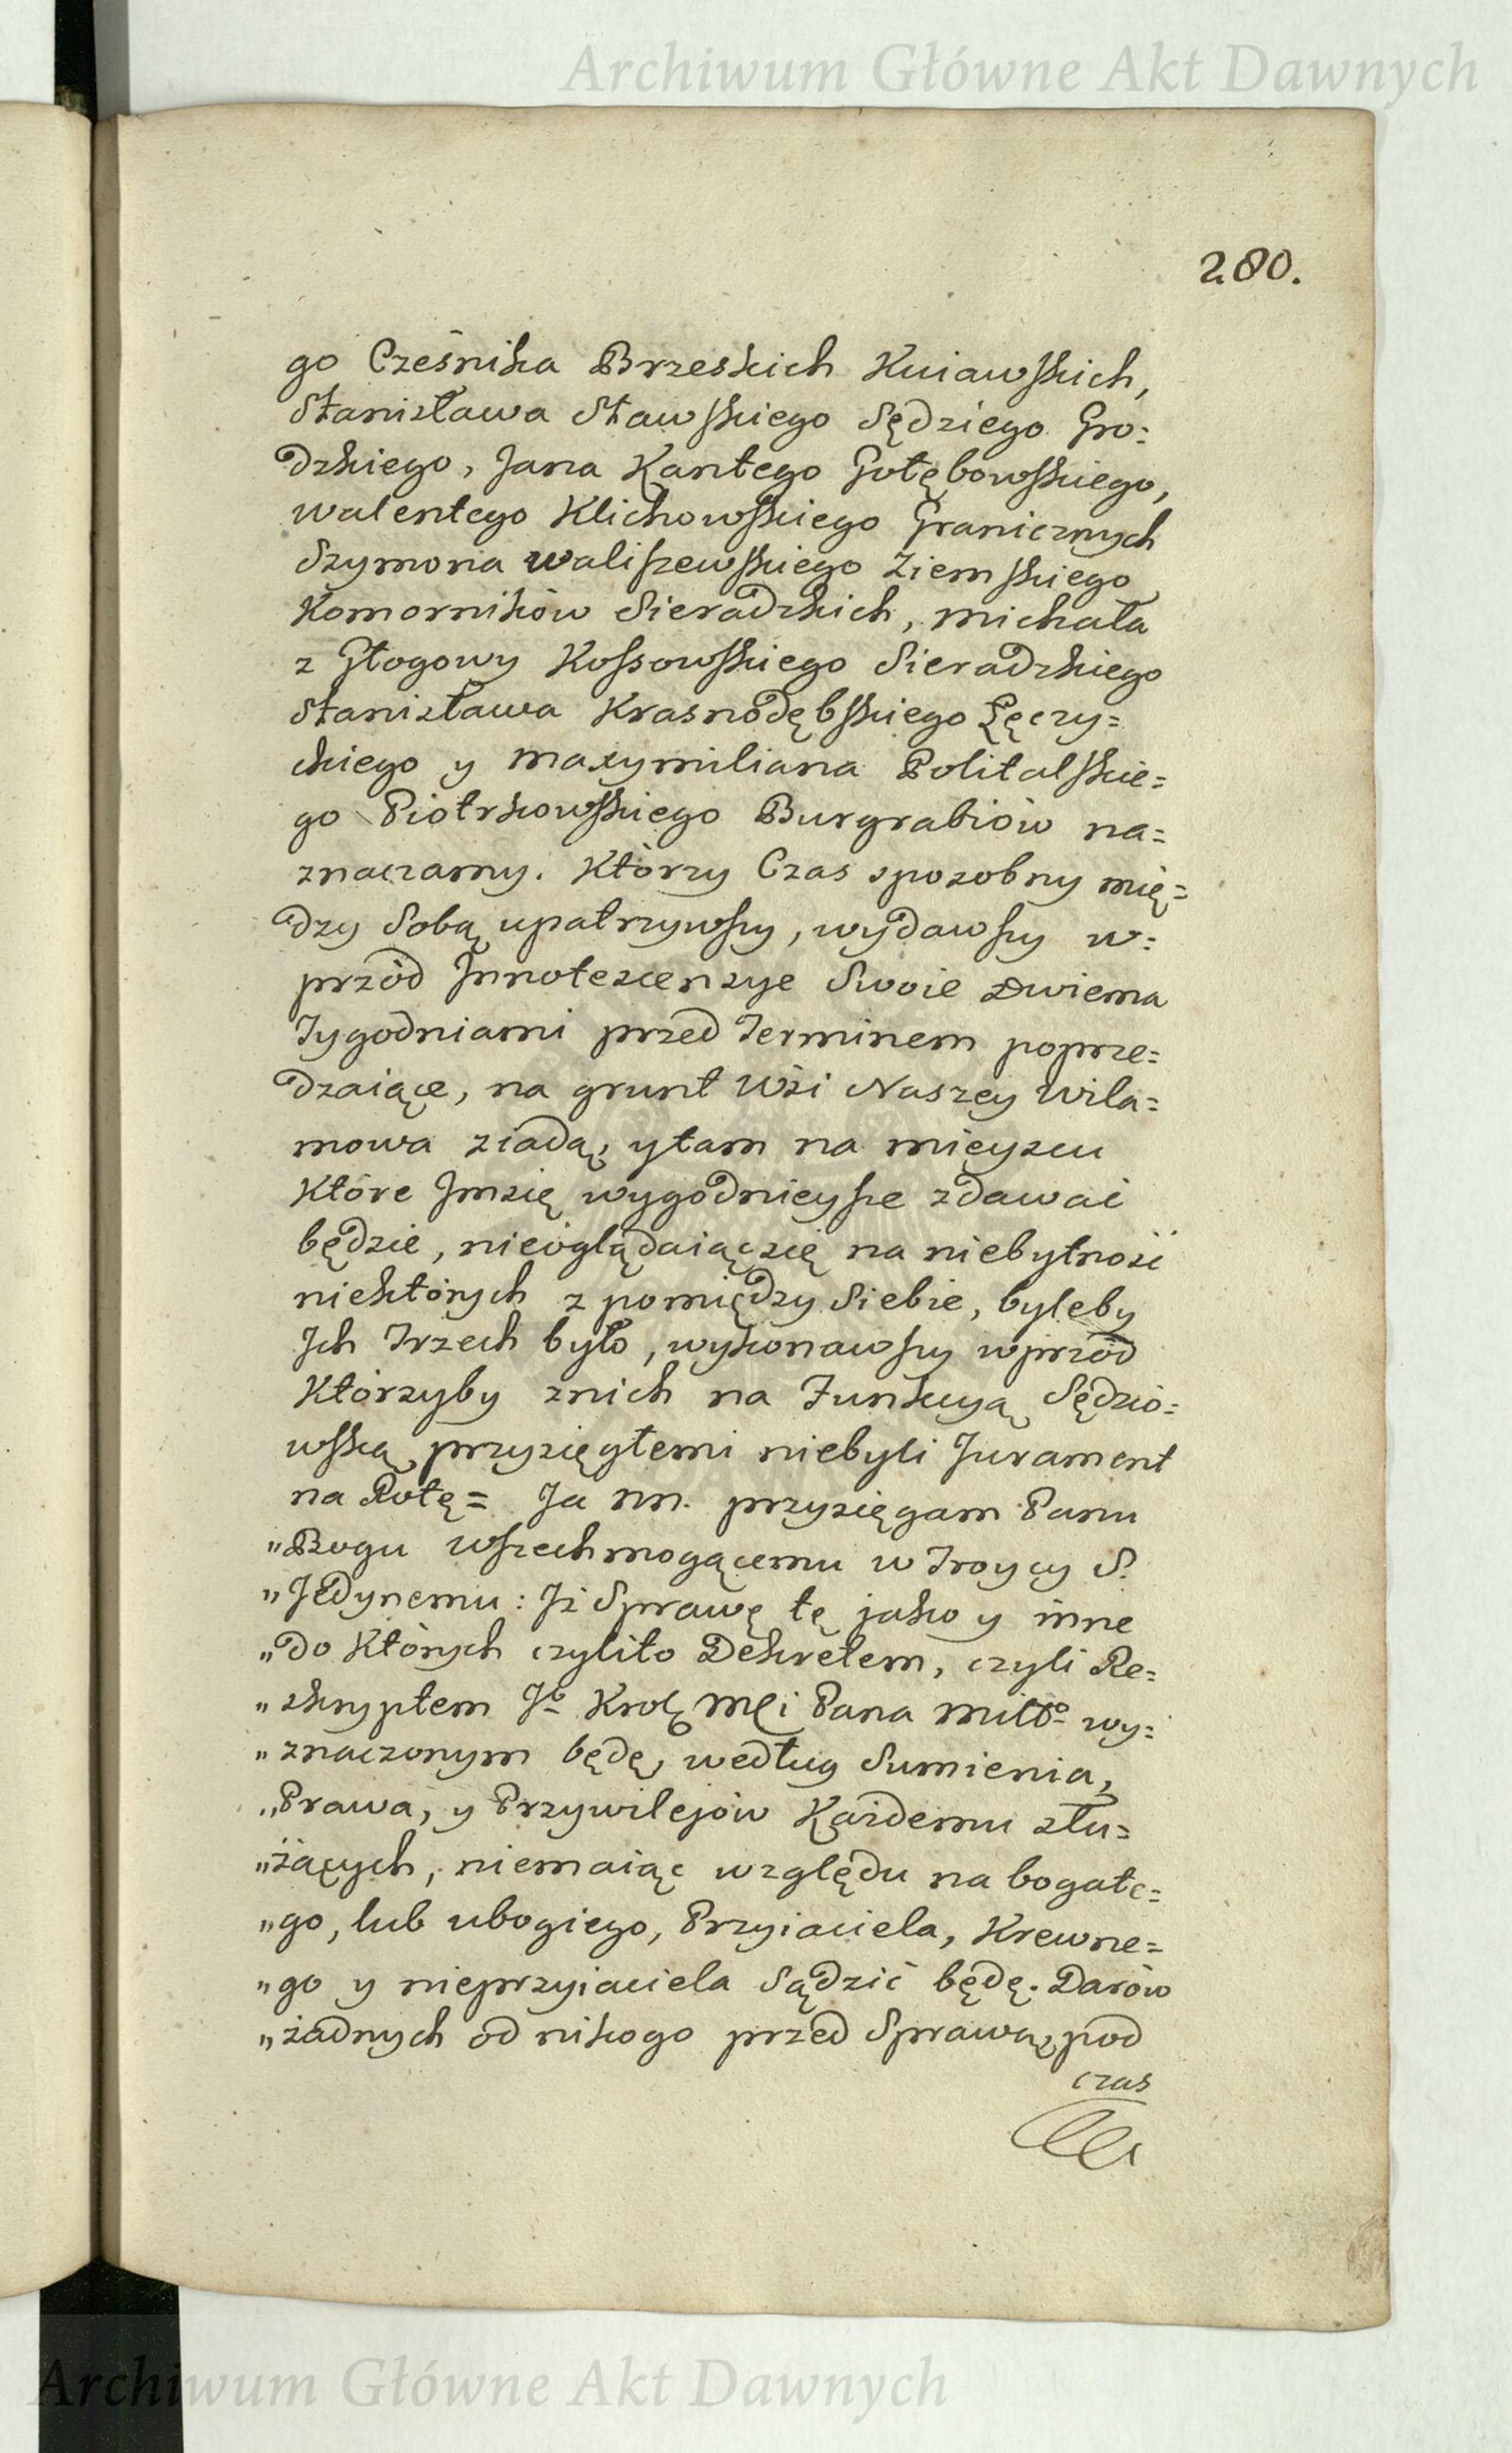 Archiwum Główne Akt Dawnych
280.
go Cześnika Brzeskich Kuiawskich,
Stanisława Stawskiego Sędziego Gro:
dzkiego, Jana Kantego Gołębowskiego,
Walentego Klichowskiego Granicznych
Szymona Waliszewskiego Ziemskiego
Komorników Sieradzkich, Michała
z Głogowy Kossowskiego Sieradzkiego
Stanisława Krasnodębskiego Łęczy=
ckiego y Maxymiliana Politalskie=
go Piotrkowskiego Burgrabiów na=
znaczamy. Którzy Czas sposobny mię=
dzy Sobą upatrzywszy, wydawszy w:
przód Innotescensye Swoie Dwiema
Tygodniami przed Terminem poprze=
dzaiące, na grunt Wsi Naszey Wila=
mowa ziadą, y tam na mieyscu
Które Jm się wygodnieysze zdawać
będzie, nieoglądaiąc się na niebytność
niektórych z pomiędzy Siebie, byleby
Jch Trzech było, wykonawszy wprzód
Którzyby z nich na Funkcyą Sędzio=
wską przysięgłemi niebyli Jurament
na Rotę= Ja NN. przysięgam Panu
"Bogu wszechmogącemu w Troycy S.
"Jedynemu: Jż Sprawę tę jako y inne
"do Których czyli to Dekretem, czyli Re=
"skryptem Jo Krolę Mci Pana Miłgo wy:
"znaczonym będę, według Sumienia,
"Prawa, y Przywilejów Każdemu słu=
"żących, niemaiąc względu na bogate=
"go, lub ubogiego, Przyiaciela, Krewne=
"go y nieprzyiaciela Sądzić będę. Darów
"żadnych od nikogo przed Sprawą, pod
czas
Archiwum Główne Akt Dawnych